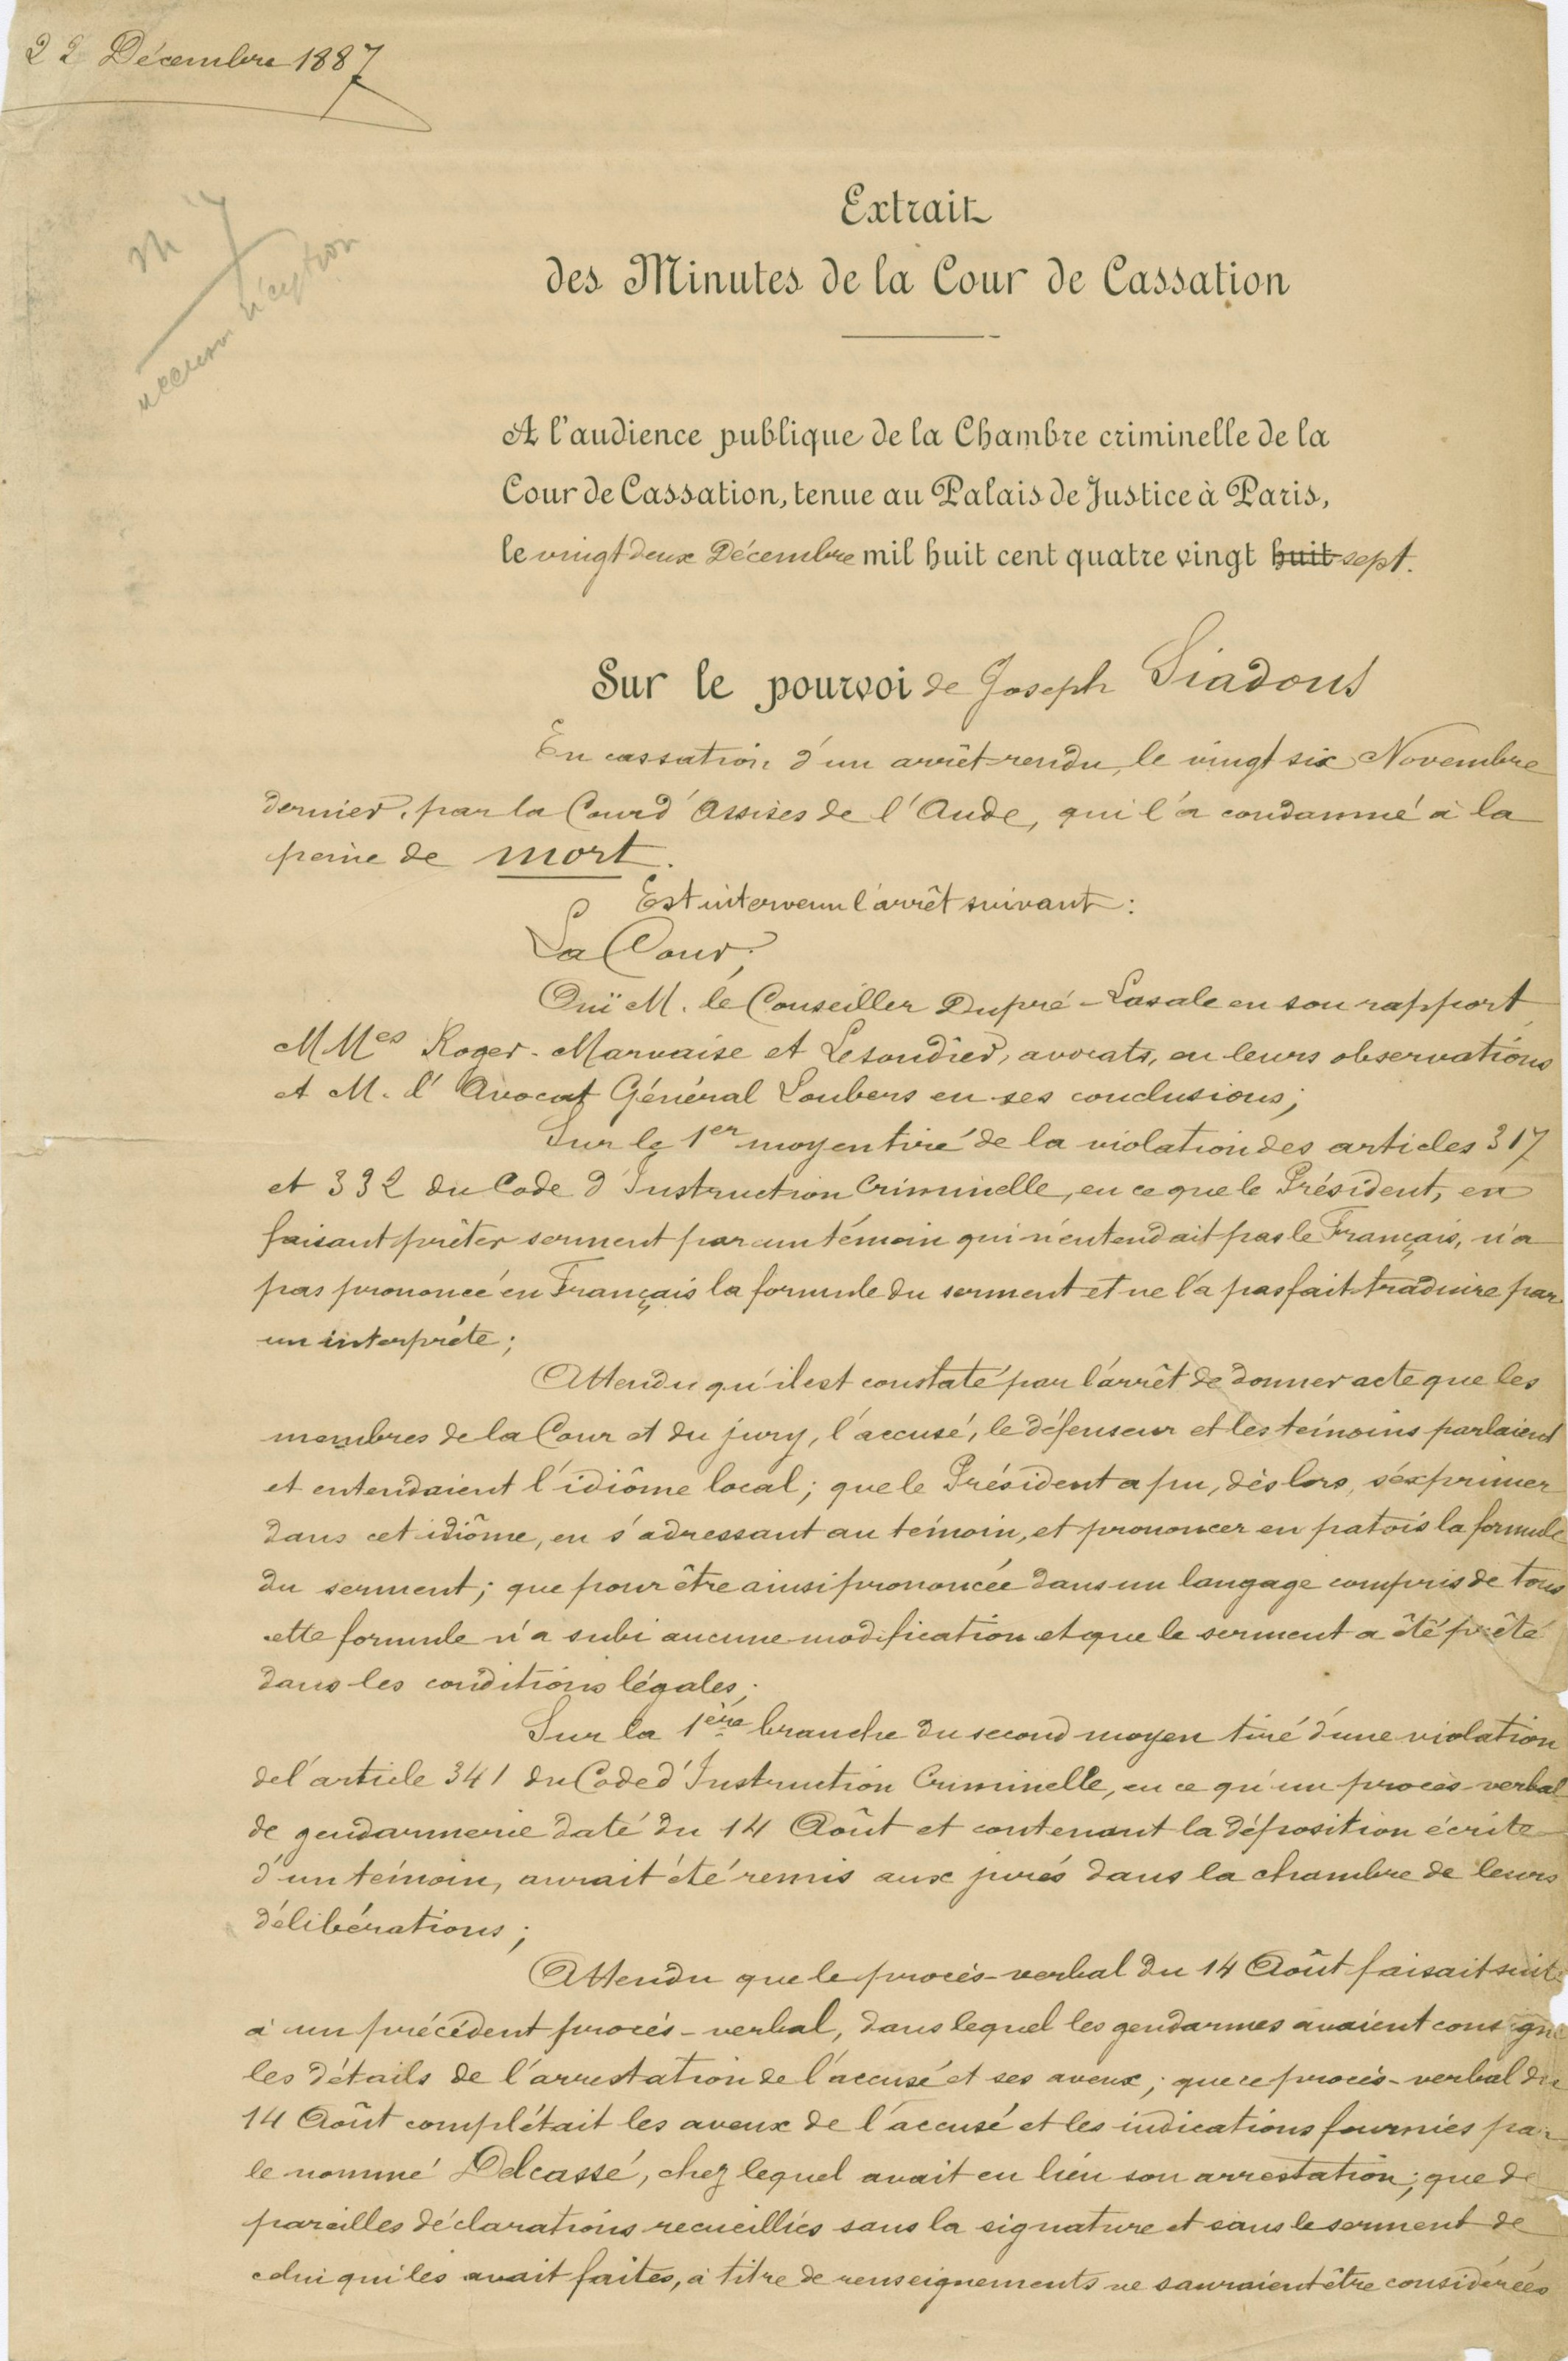 22 Décembre 1887
Extrait
des Minutes de la Cour de Cassation
A l'audience publique de la Chambre criminelle de la
Cour de Cassation, tenue au Palais de Justice à Paris,
le vingt deux Décembre mil huit cent quatre vingt huit sept.
Sur le pourvoi de Joseph Siadous
En cassation d'un arrêt rendu, le vingt six Novembre
dernier, par la Cour d'Assises de l'Aude, qui l'a condamné à la
peine de mort.
Est intervenu l'arrêt suivant :
La Cour,
Ouï M. le Conseiller Dupré-Lasale en son rapport
MMes Roger-Marvaise et Lesoudier, avocats, en leurs observations
et M. l'Avocat Général Loubers en ses conclusions ;
Sur le 1er moyen tiré de la violation des articles 317
et 332 du Code d'Instruction Criminelle, en ce que le Président, en
faisant prêter serment par un témoin qui n'entendait pas le Français, n'a
pas prononcé en Français la formule du serment et ne l'a pas fait traduire par
un interprète ;
Attendu qu'il est constaté par l'arrêt de donner acte que les
membres de la Cour et du jury, l'accusé, le défenseur et les témoins parlaient
et entendaient l'idiôme local ; que le Président a pu, dès lors, s'exprimer
dans cet idiôme, en s'adressant au témoin, et prononcer en patois la formule
du serment ; que pour être ainsi prononcée dans un langage compris de tous
cette formule n'a subi aucune modification et que le serment a été prêté
dans les conditions légales ;
Sur la 1ère branche du second moyen tiré d'une violation
de l'article 341 du Code d'Instruction Criminelle, en ce qu'un procès-verbal
de gendarmerie daté du 14 Août et contenant la déposition écrite
d'un témoin, aurait été remis aux jurés dans la chambre de leurs
délibérations ;
Attendu que le procès-verbal du 14 Août faisait suite
à un précédent procès-verbal, dans lequel les gendarmes avaient consigné
les détails de l'arrestation de l'accusé et ses aveux ; que ce procès-verbal du
14 Août complétait les aveux de l'accusé et les indications fournies par
le nommé Delcassé, chez lequel avait eu lieu son arrestation ; que de
pareilles déclarations recueillies sans la signature et sans le serment de
celui qui les avait faites, à titre de renseignements ne sauraient être considérées